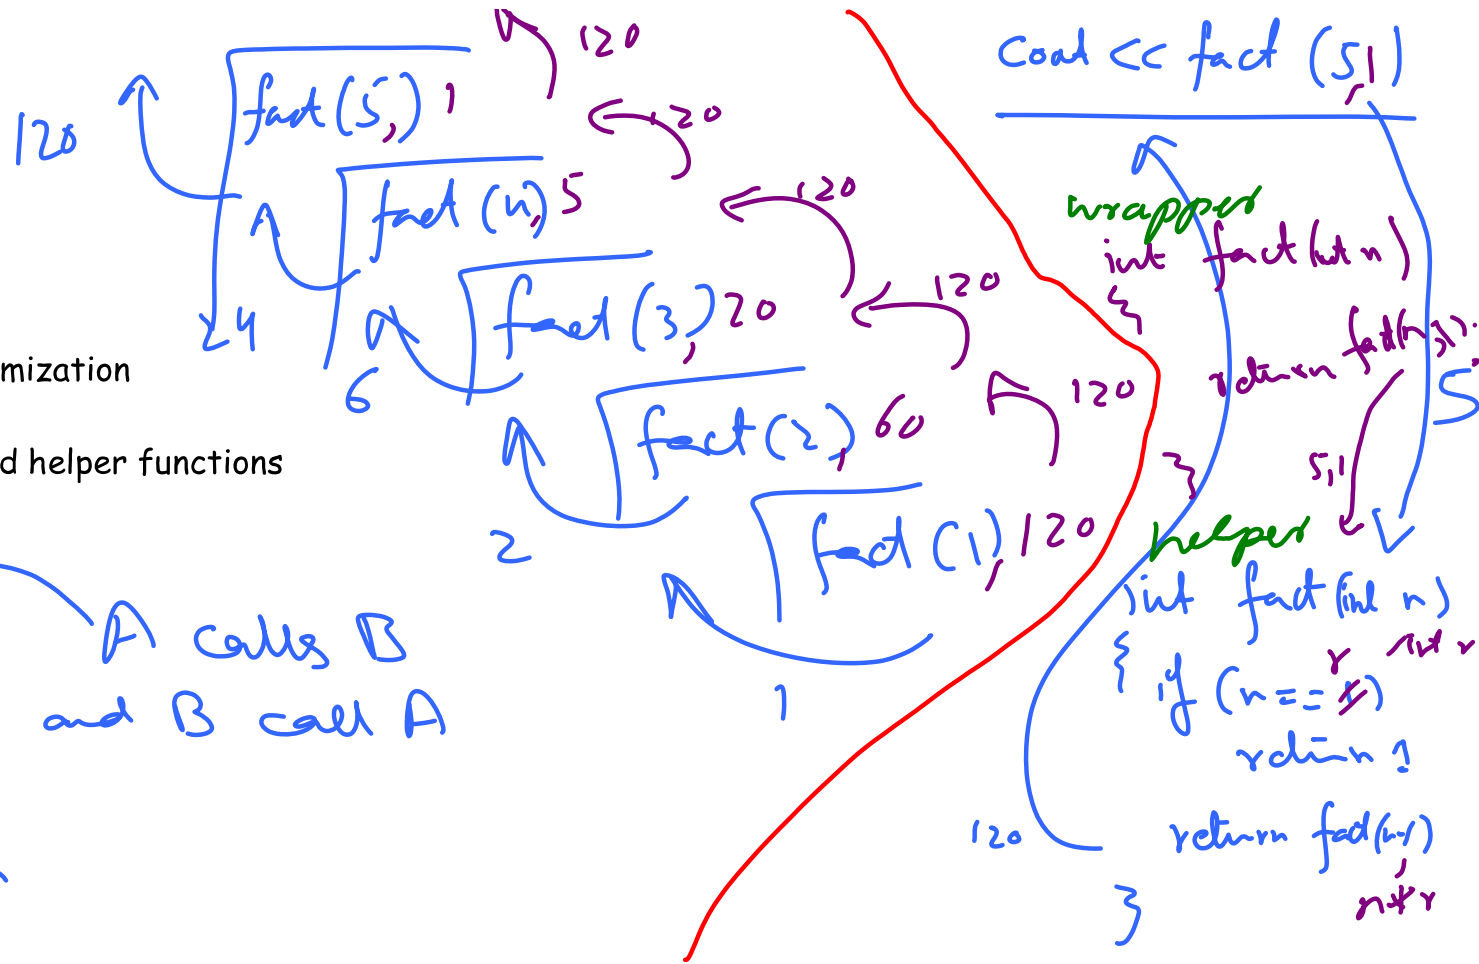 120
fact(5,) 1
120
120
fact(n, 5
120
24
fact(3, 20
120
6
mization
d helper functions
fact(2), 60
120
2
fact(1), 120
1
A calls B
and B call A
cout << fact (5,1)
wrapper
int fact(int n)
{
return fact(n,1).
5
}
5,1
helper
int fact(int n)
r int r
{ if (n==1)
return 1
120
return fact(n-1)
,
n*r
}